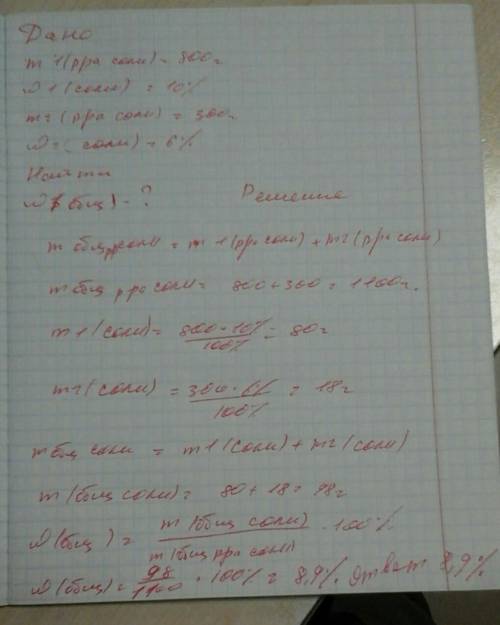 Дано
m1(рра соли) = 800г
ω1(соли) = 10%
m2(рра соли) = 300г
ω2(соли) = 6%
Найти
ω(общ) - ?
Решение
m общ рр соли = m1(рра соли) + m2(рра соли)
m общ рра соли = 800 + 300 = 1100г.
m1(соли) = 800 · 10% / 100% = 80г
m2(соли) = 300 · 6% / 100% = 18г
m общ соли = m1(соли) + m2(соли)
m(общ соли) = 80 + 18 = 98г
ω(общ) = m(общ соли) / m(общ рра соли) · 100%
ω(общ) = 98 / 1100 · 100% = 8,9%. Ответ 8,9%